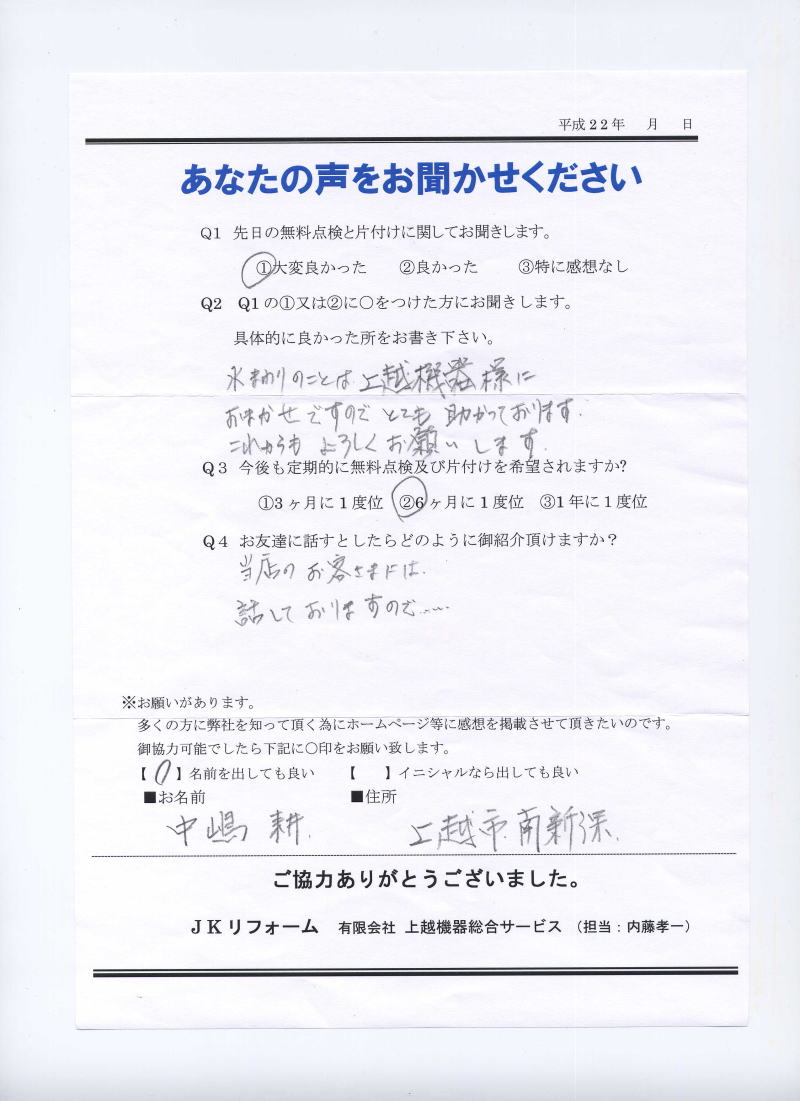 平成22年　月　日
あなたの声をお聞かせください
Q1 先日の無料点検と片付けに関してお聞きします。
①大変良かった　②良かった　③特に感想なし
Q2 Q1の①又は②に○をつけた方にお聞きします。
具体的に良かった所をお書き下さい。
水まわりのことは上越機器様に
おまかせですのでとても助かっております.
これからもよろしくお願いします.
Q3 今後も定期的に無料点検及び片付けを希望されますか?
①3ヶ月に1度位　②6ヶ月に1度位　③1年に1度位
Q4 お友達に話すとしたらどのように御紹介頂けますか?
当店のお客さまには.
話しておりますので……
※お願いがあります。
多くの方に弊社を知って頂く為にホームページ等に感想を掲載させて頂きたいのです。
御協力可能でしたら下記に○印をお願い致します。
【○】名前を出しても良い　【　】イニシャルなら出しても良い
■お名前　■住所
中嶋 耕.　上越市.南新保.
ご協力ありがとうございました。
JKリフォーム　有限会社 上越機器総合サービス （担当：内藤孝一）